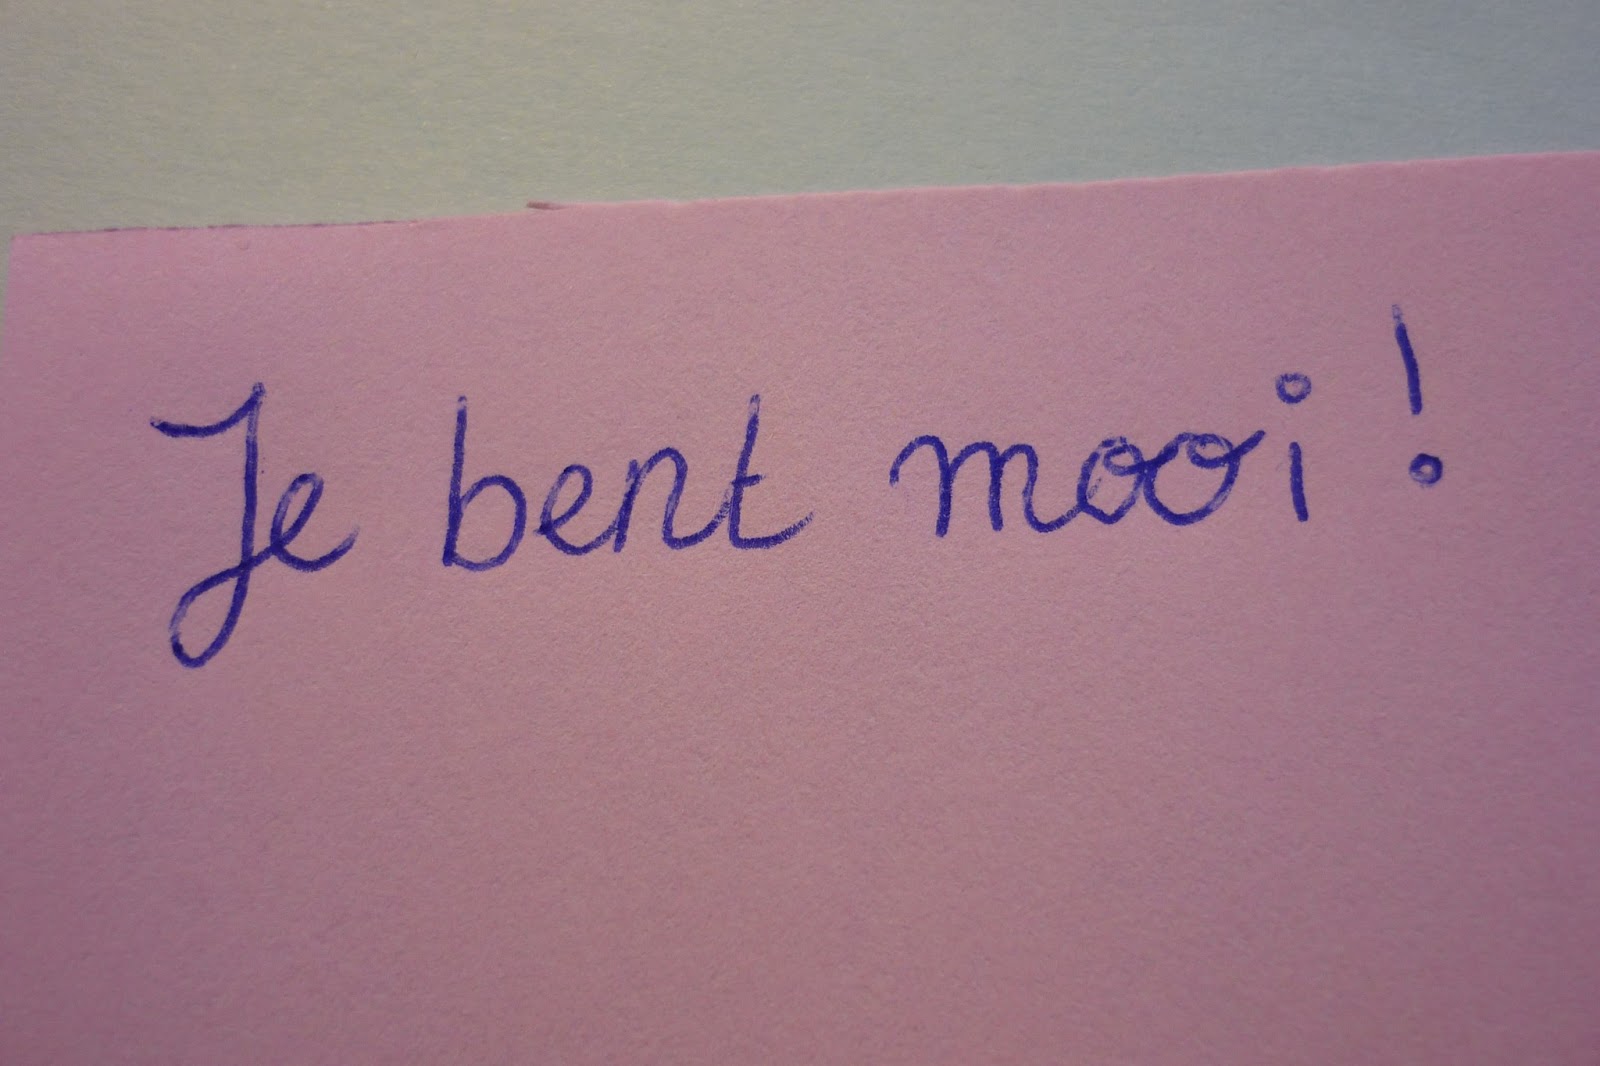 Je bent mooi!